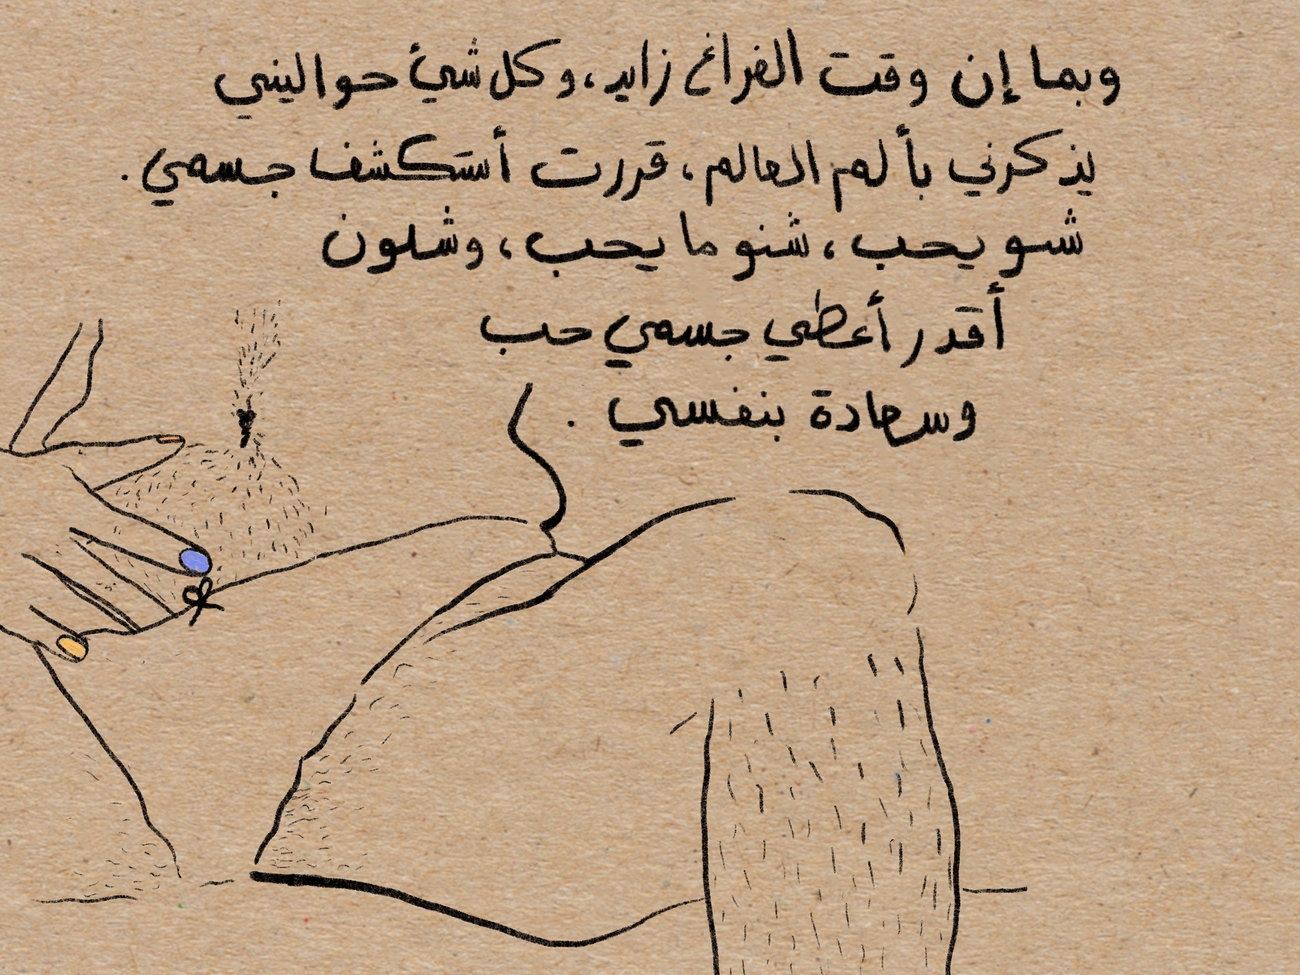 وبما إن وقت الفراغ زايد، وكل شيئ حواليني
يذكرني بألم العالم، قررت أستكشف جسمي.
شو يحب، شنو ما يحب، وشلون
أقدر أعطي جسمي حب
وسعادة بنفسي.